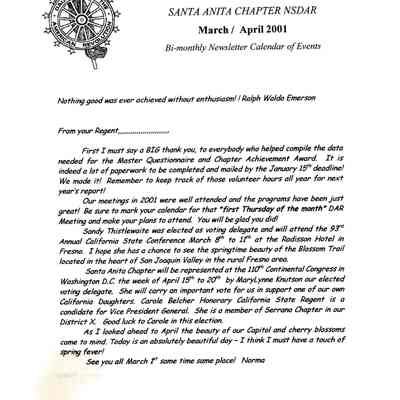 SANTA ANITA CHAPTER NSDAR
March / April 2001
Bi-monthly Newsletter Calendar of Events
Nothing good was ever achieved without enthusiasm! ! Ralph Waldo Emerson
From your Regent,,,,,,,,,,,,,,,,,,,,,,,
First I must say a BIG thank you, to everybody who helped compile the data
needed for the Master Questionnaire and Chapter Achievement Award. It is
indeed a lot of paperwork to be completed and mailed by the January 15th deadline!
We made it! Remember to keep track of those volunteer hours all year for next
year's report!
Our meetings in 2001 were well attended and the programs have been just
great! Be sure to mark your calendar for that "first Thursday of the month" DAR
Meeting and make your plans to attend. You will be glad you did!
Sandy Thistlewaite was elected as voting delegate and will attend the 93rd
Annual California State Conference March 8th to 11th at the Radisson Hotel in
Fresno. I hope she has a chance to see the springtime beauty of the Blossom Trail
located in the heart of San Joaquin Valley in the rural Fresno area.
Santa Anita Chapter will be represented at the 110th Continental Congress in
Washington D.C. the week of April 15th to 20th by MaryLynne Knutson our elected
voting delegate. She will carry an important vote for us in support one of our own
California Daughters. Carole Belcher Honorary California State Regent is a
candidate for Vice President General. She is a member of Serrano Chapter in our
District X. Good luck to Carole in this election.
As I looked ahead to April the beauty of our Capitol and cherry blossoms
came to mind. Today is an absolutely beautiful day – I think I must have a touch of
spring fever!
See you all March 1st same time same place! Norma